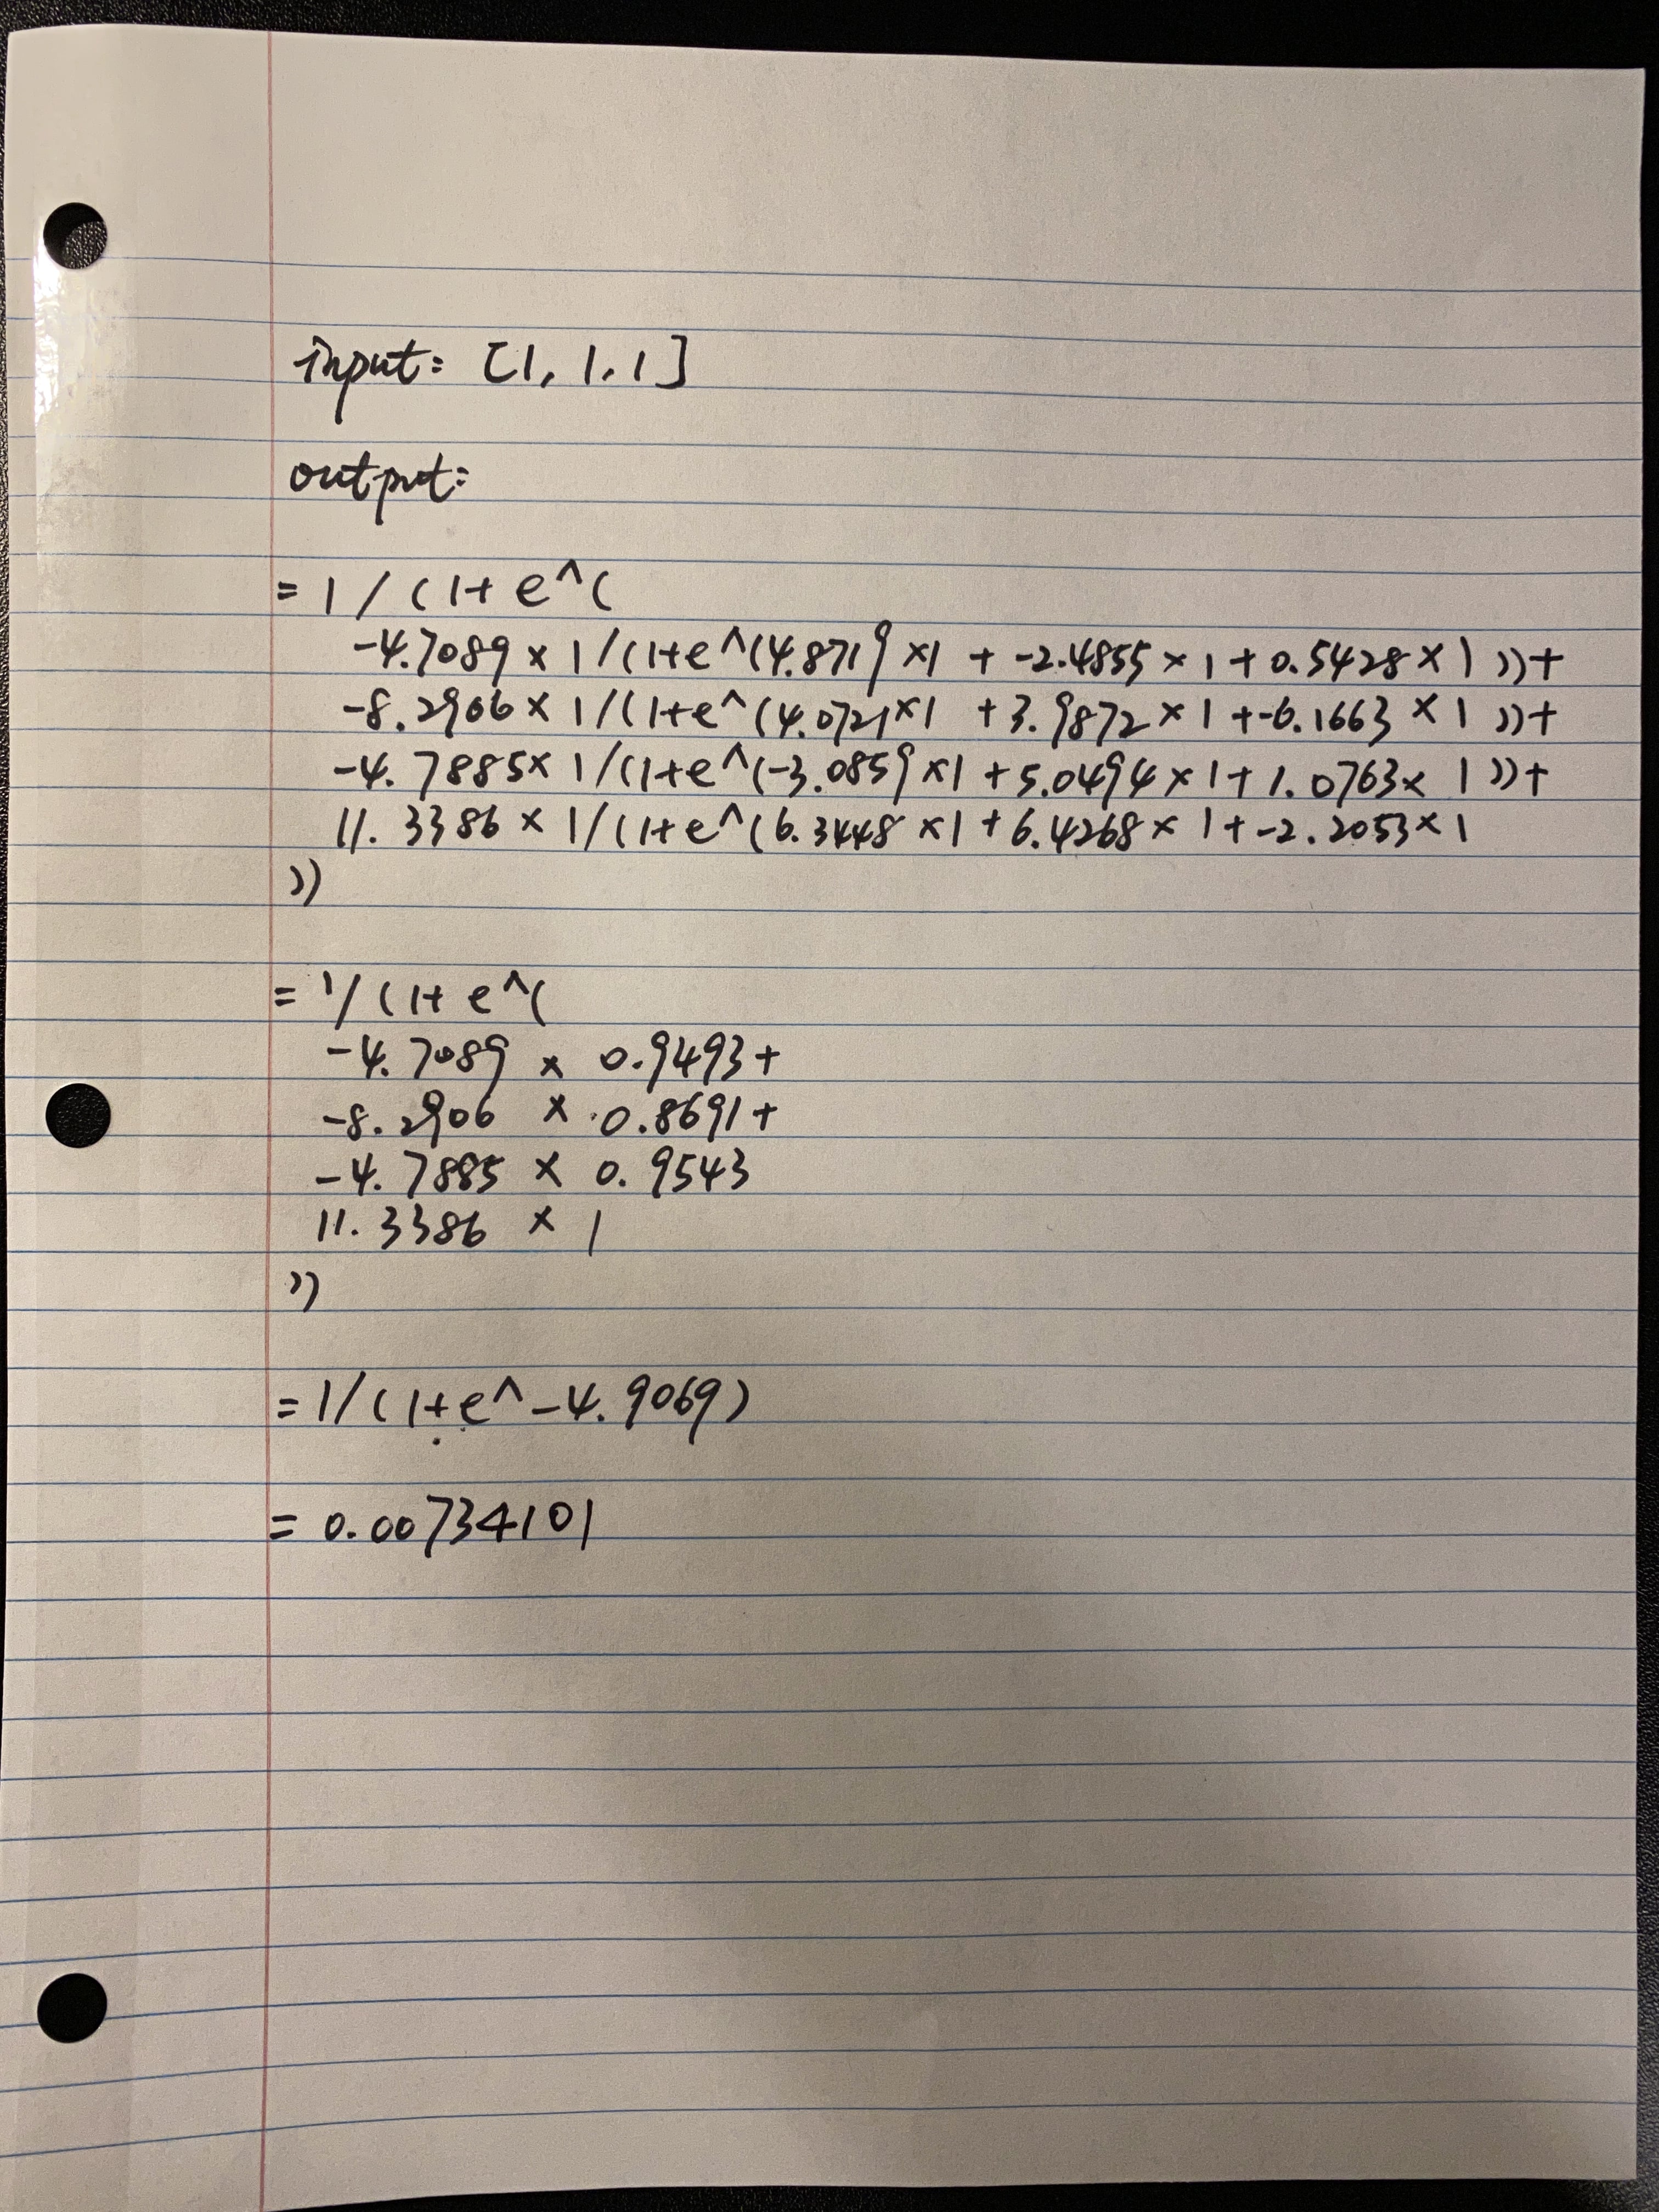 input: [1, 1, 1]
output:
= 1 / (1+ e^(
-4.7089 × 1/(1+e^(4.8719 ×1 + -2.4855 × 1 + 0.5428 × 1 ))+
-8.2906 × 1/(1+e^(4.0721×1 +3.9872 × 1 +-6.1663 × 1 ))+
-4.7885× 1/(1+e^(-3.0859 ×1 + 5.0494 × 1 + 1.0763× 1 ))+
11.3386 × 1/(1+e^(6.3448 ×1 + 6.4268 × 1 + -2.2053×1
))
= 1/(1+ e^(
-4.7089 × 0.9493+
-8.2906 × 0.8691+
-4.7885 × 0.9543
11.3386 × 1
))
= 1/(1+e^-4.9069)
= 0.00734101